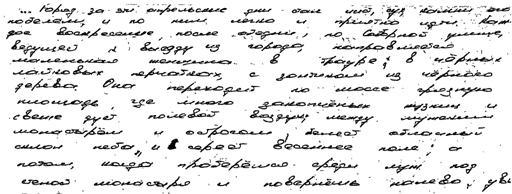 ... Город за эти апрельские дни стал чист, сух, камни его
побелели, и по ним легко и приятно идти. Каж
дое воскресенье, после обедни, по Соборной улице,
ведущей к выезду из города, направляется
маленькая женщина в трауре, в чёрных
лайковых перчатках, с зонтиком из чёрного
дерева. Она переходит по шоссе грязную
площадь, где много закопчённых кузниц и
свежо дует полевой воздух; между мужским
монастырём и острогом белеет облачный
склон неба, и сереет весеннее поле, а
потом, когда проберёшься среди луж под
стеной монастыря и повернёшь налево, уви